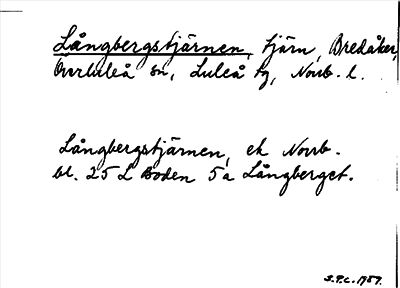 Långbergstjärnen, tjärn, Bredåker,
Överluleå sn, Luleå tg, Norrb. l.
Långbergstjärnen, ek Norrb.
bl. 25 L Boden 5 a Långberget.
S.P.L. 1957.